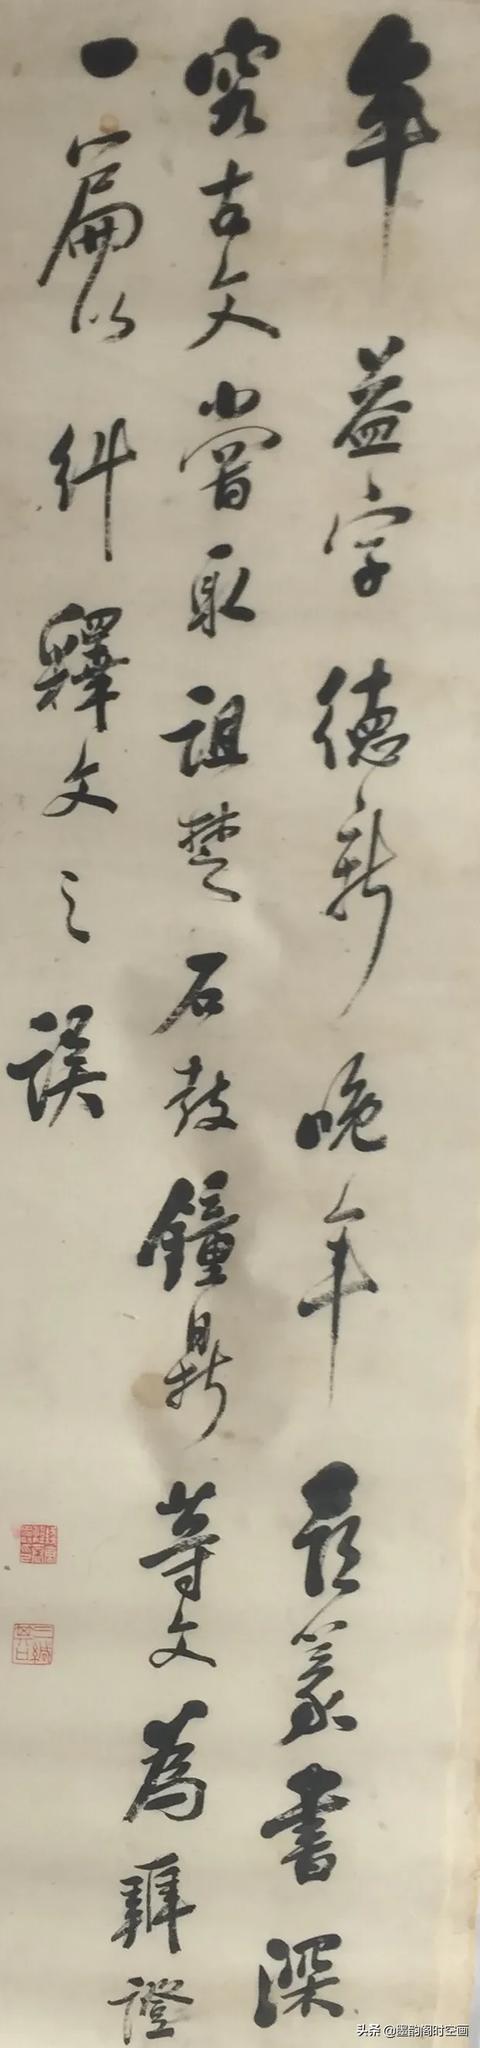 牟益字德新晚年篆書深
究古文嘗取詛楚石鼓鐘鼎等文為辨證
一篇以糾釋文之誤
头条 @墨韵阁时空画